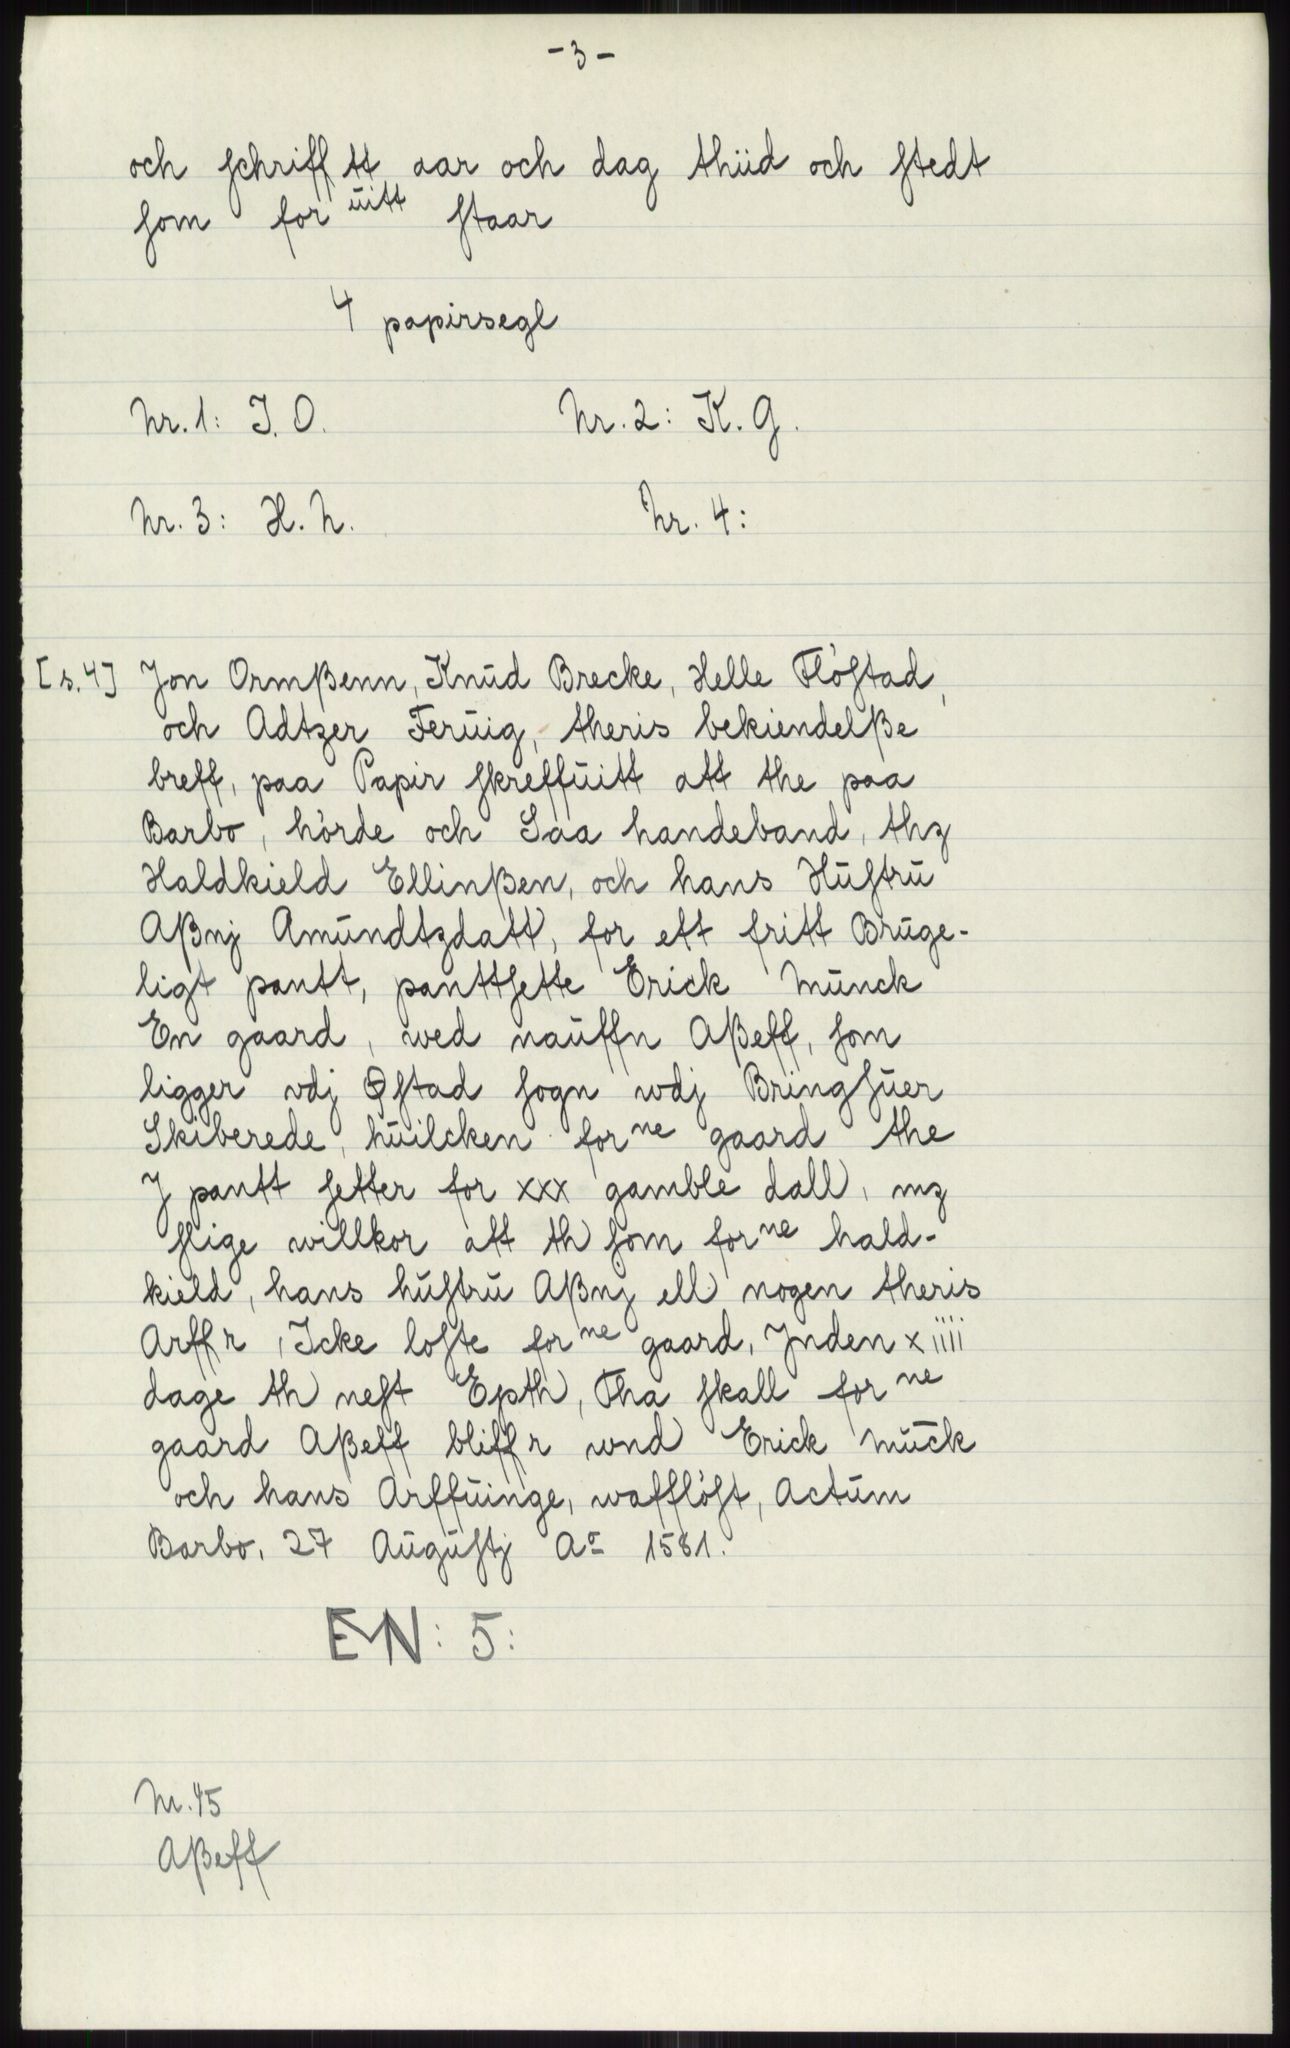 - 3 -
och schrifftt aar och dag thüd och stedt
som foruitt staar
4 papirsegl
Nr. 1: J. O. Nr. 2: K. G.
Nr. 3: H. N. Nr. 4:
[s. 4] Jon Ormßenn, Knud Brecke, Helle Fløstad,
och Adtzer Feruig, theris bekiendelße
breff, paa Papir skreffuitt att the paa
Barbo, hørde och Saa handeband, thz
Haldkield Ellinßen, och hans Hustru
Aßnj Amundtzdatt, for ett fritt Bruge-
ligt pantt, panttsette Erick Munck
En gaard, wed nauffn Aßeff, som
ligger vdj Østad sogn wdj Bringsuer
Skiberede, huilcken forne gaard the
J pantt setter for xxx gamble dall, mz
slige willkor att th som forne hald-
kield, hans hustru Aßnj ell nogen theris
Arffr, Icke loste forne gaard, Jnden xiiii
dage th nest Epth, Tha skall forne
gaard Aßeff bliffr wnd Erick Mūck
och hans Arffuinge, waffløst, Actum
Barbo, 27 Augustj Ao 1581.
EMN: 5:
Nr. 45
Aßeff